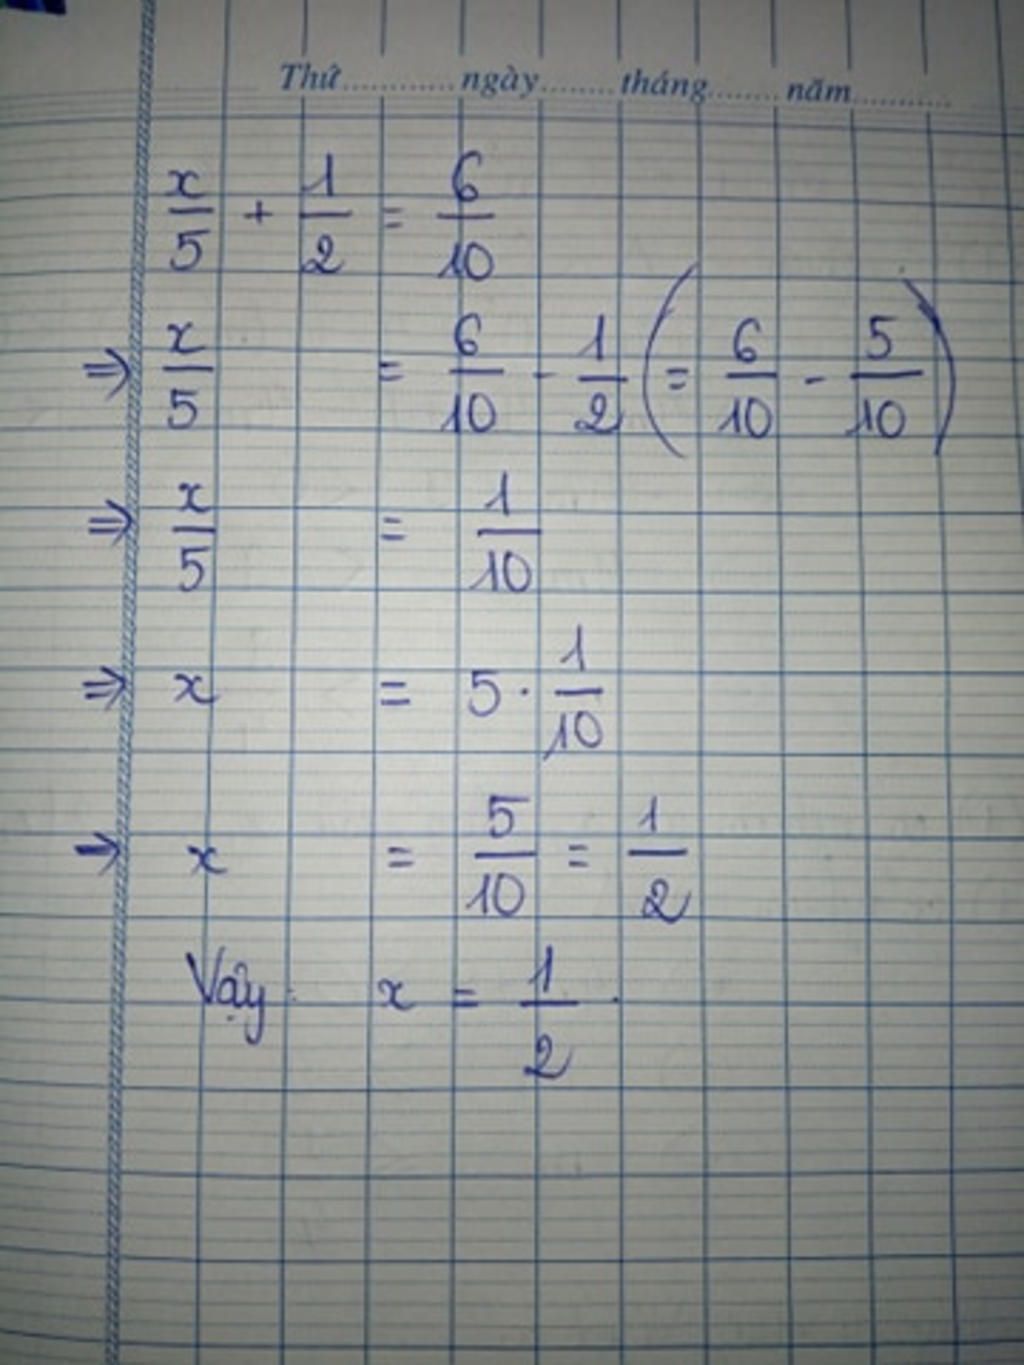 Thứ............ngày........tháng........năm...........
x/5 + 1/2 = 6/10
⇒ x/5 = 6/10 - 1/2 (= 6/10 - 5/10)
⇒ x/5 = 1/10
⇒ x = 5 · 1/10
→ x = 5/10 = 1/2
Vậy x = 1/2 .